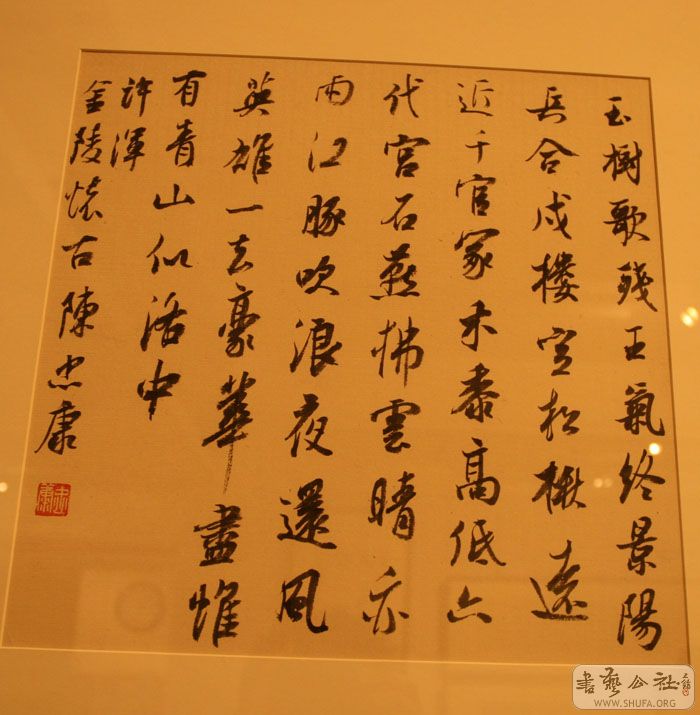 玉樹歌殘王氣終景陽
兵合戍樓空松楸遠
近千官冢禾黍高低六
代宮石燕拂雲晴亦
雨江豚吹浪夜還風
英雄一去豪華盡惟
有青山似洛中
許渾
金陵懷古陳忠康
忠康
書藝公社
WWW.SHUFA.ORG